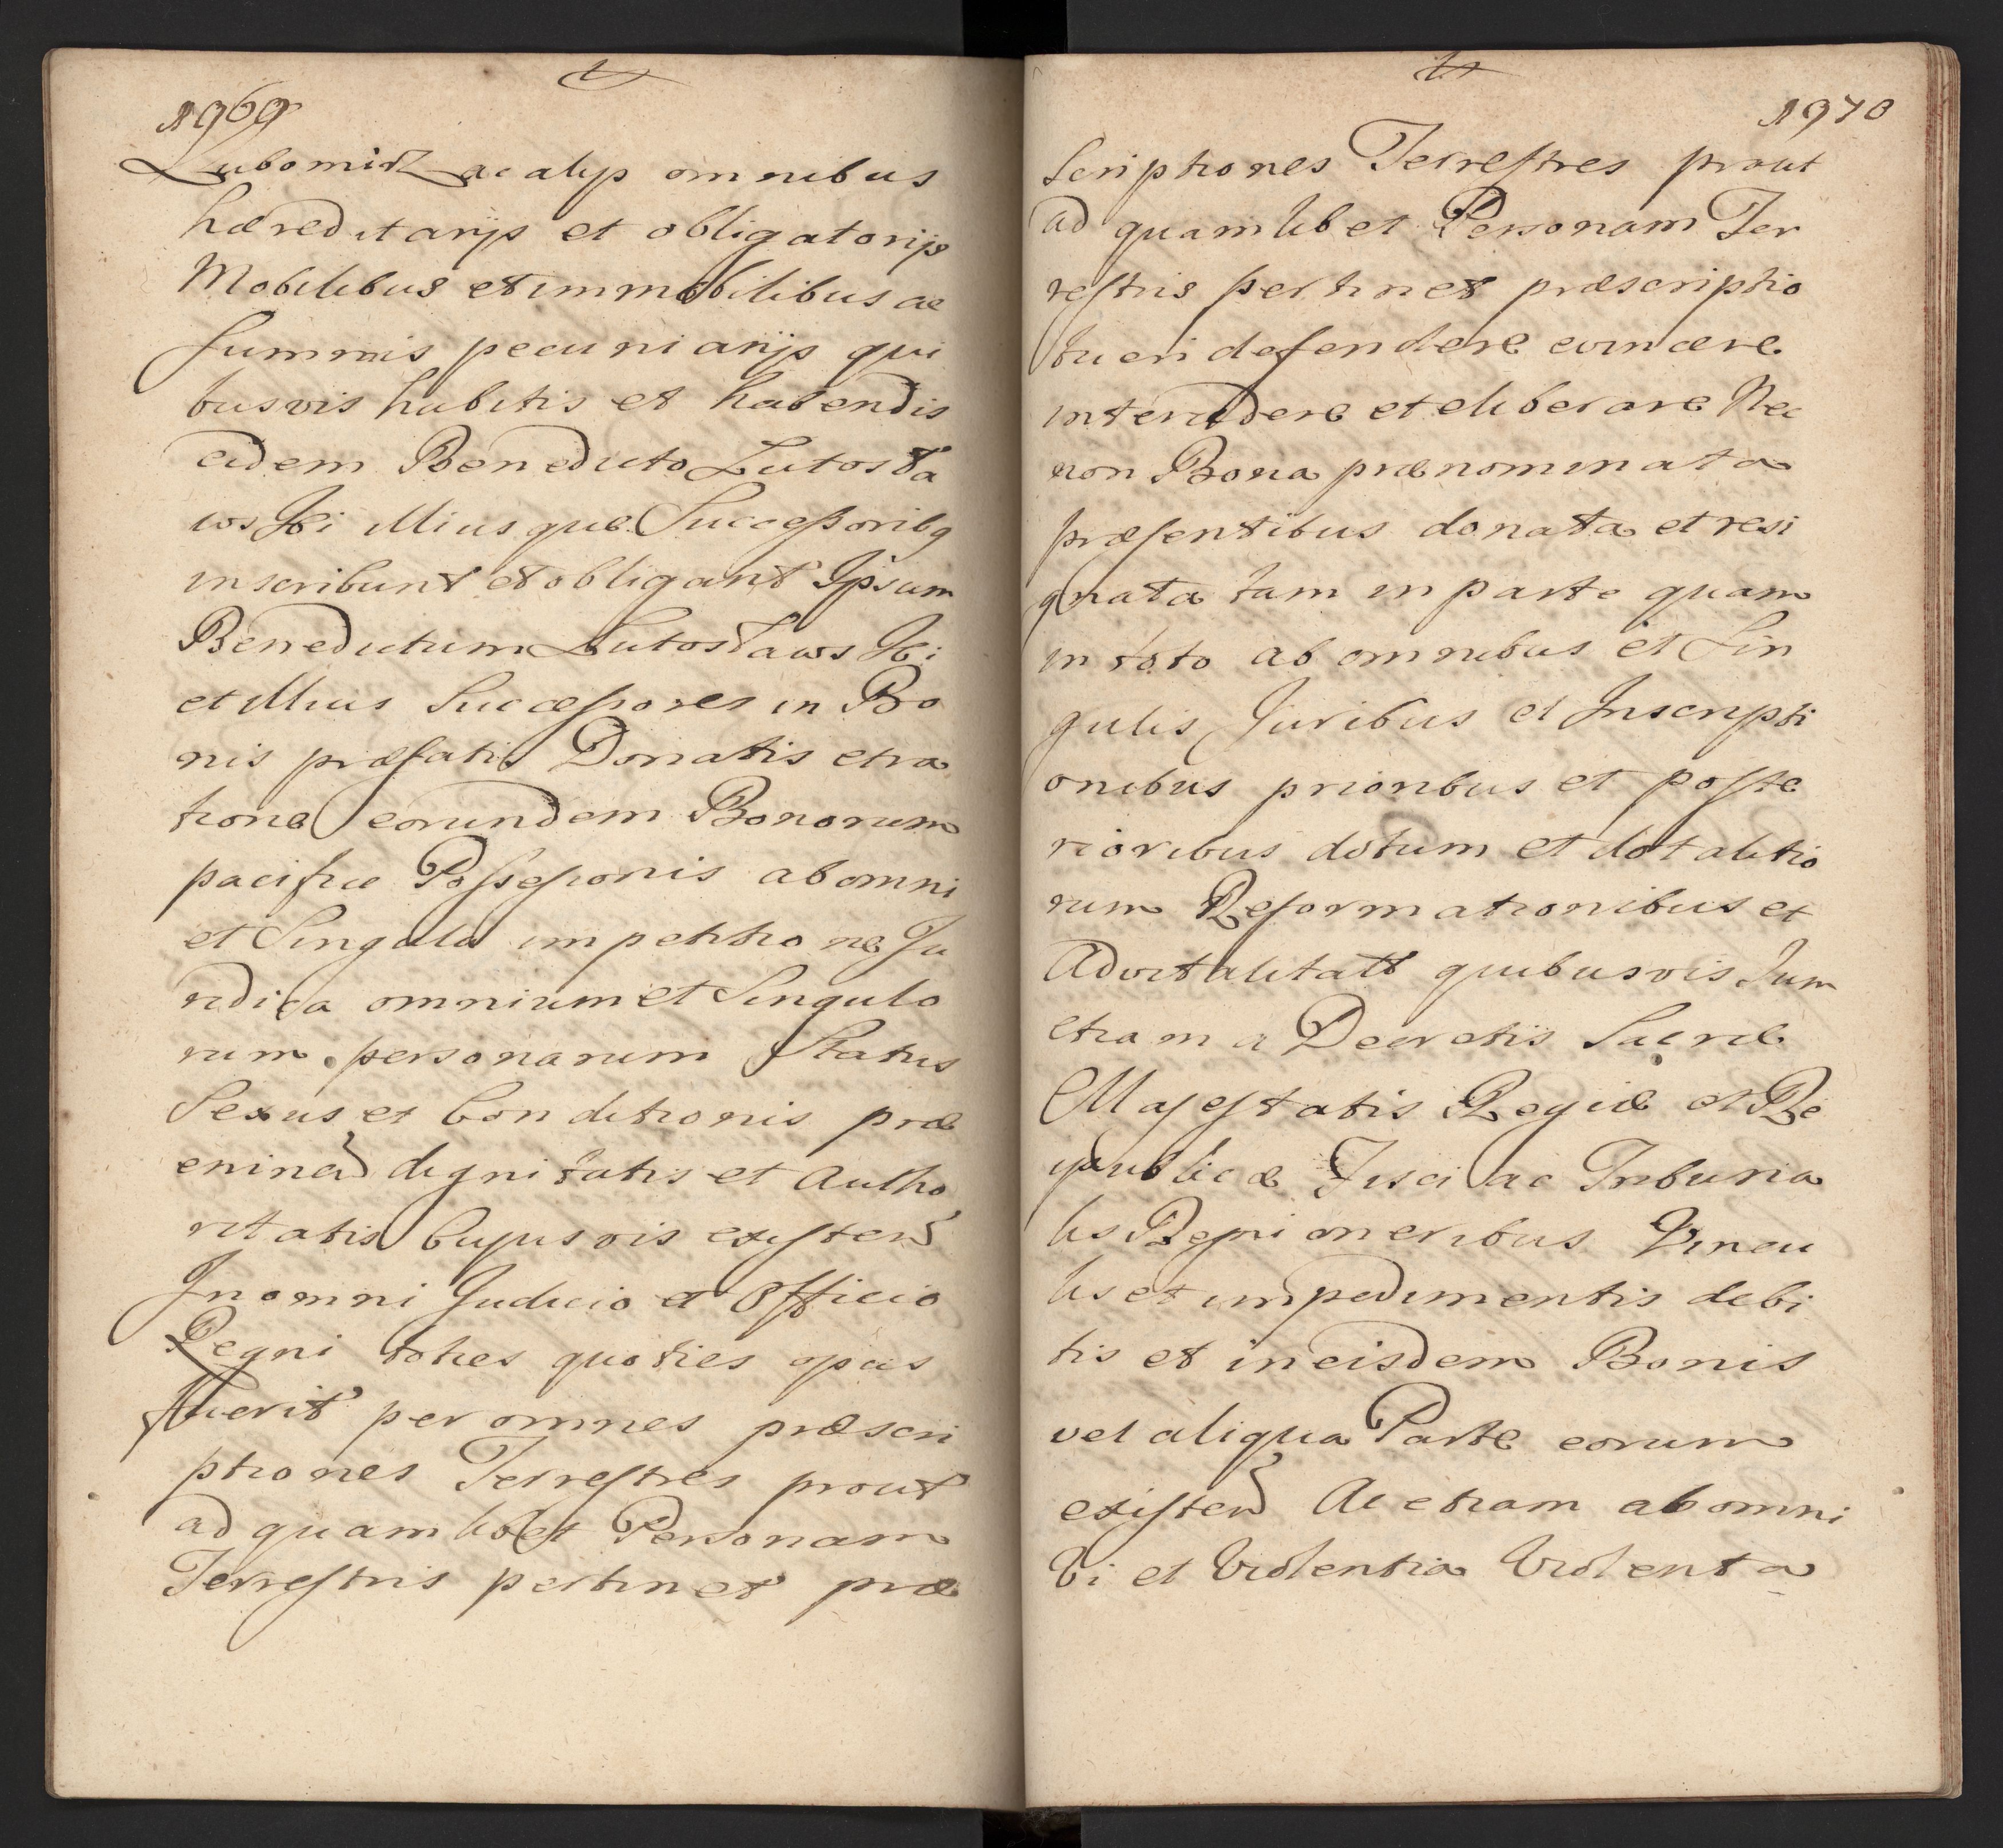 1969
Lubomirz ac alijs omnibus
hæreditarijs et obligatorijs
Mobilibus et immobilibus ac
Summis pecuniarijs qui
busvis habitis et habendis
eidem Benedicto Lutosła
wski illiusque Successoribq
inscribunt et obligant Ipsum
Benedictum Lutosławski
et illius Successores in Bo
nis præfatis Donatis et ra
tione eorundem Bonorum
pacificæ Possessionis ab omni
et Singula impetitione Ju
ridica omnium et Singulo
rum personarum Status
Sexus et Conditionis præ
eminen dignitatis et Autho
ritatis Cujusvis existen
In omni Judicio et Officio
Regni toties quoties opus
fuerit per omnes præscri
ptiones Terrestres prout
ad quamlibet Personam
Terrestris pertinet præ
1970
scriptiones Terrestres prout
ad quamlibet Personam Ter
restris pertinet præscriptio
tueri defendere evincere
intercedere et eliberare Nec
non Bona prænominata
præsentibus donata et resi
gnata tam in parte quam
in toto ab omnibus et Sin
gulis Juribus et Inscripti
onibus prioribus et poste
rioribus dotum et dotalitio
rum Reformationibus et
Advitalitatt quibusvis Tum
etiam a Decretis Sacræ
Majestatis Regiæ et Re
ipublicæ Fisci ac Tribuna
lis Regni oneribus Vincu
lis et impedimentis debi
tis et in eisdem Bonis
vel aliqua Parte eorum
existen Ac etiam ab omni
Vi et Violentia Violenta